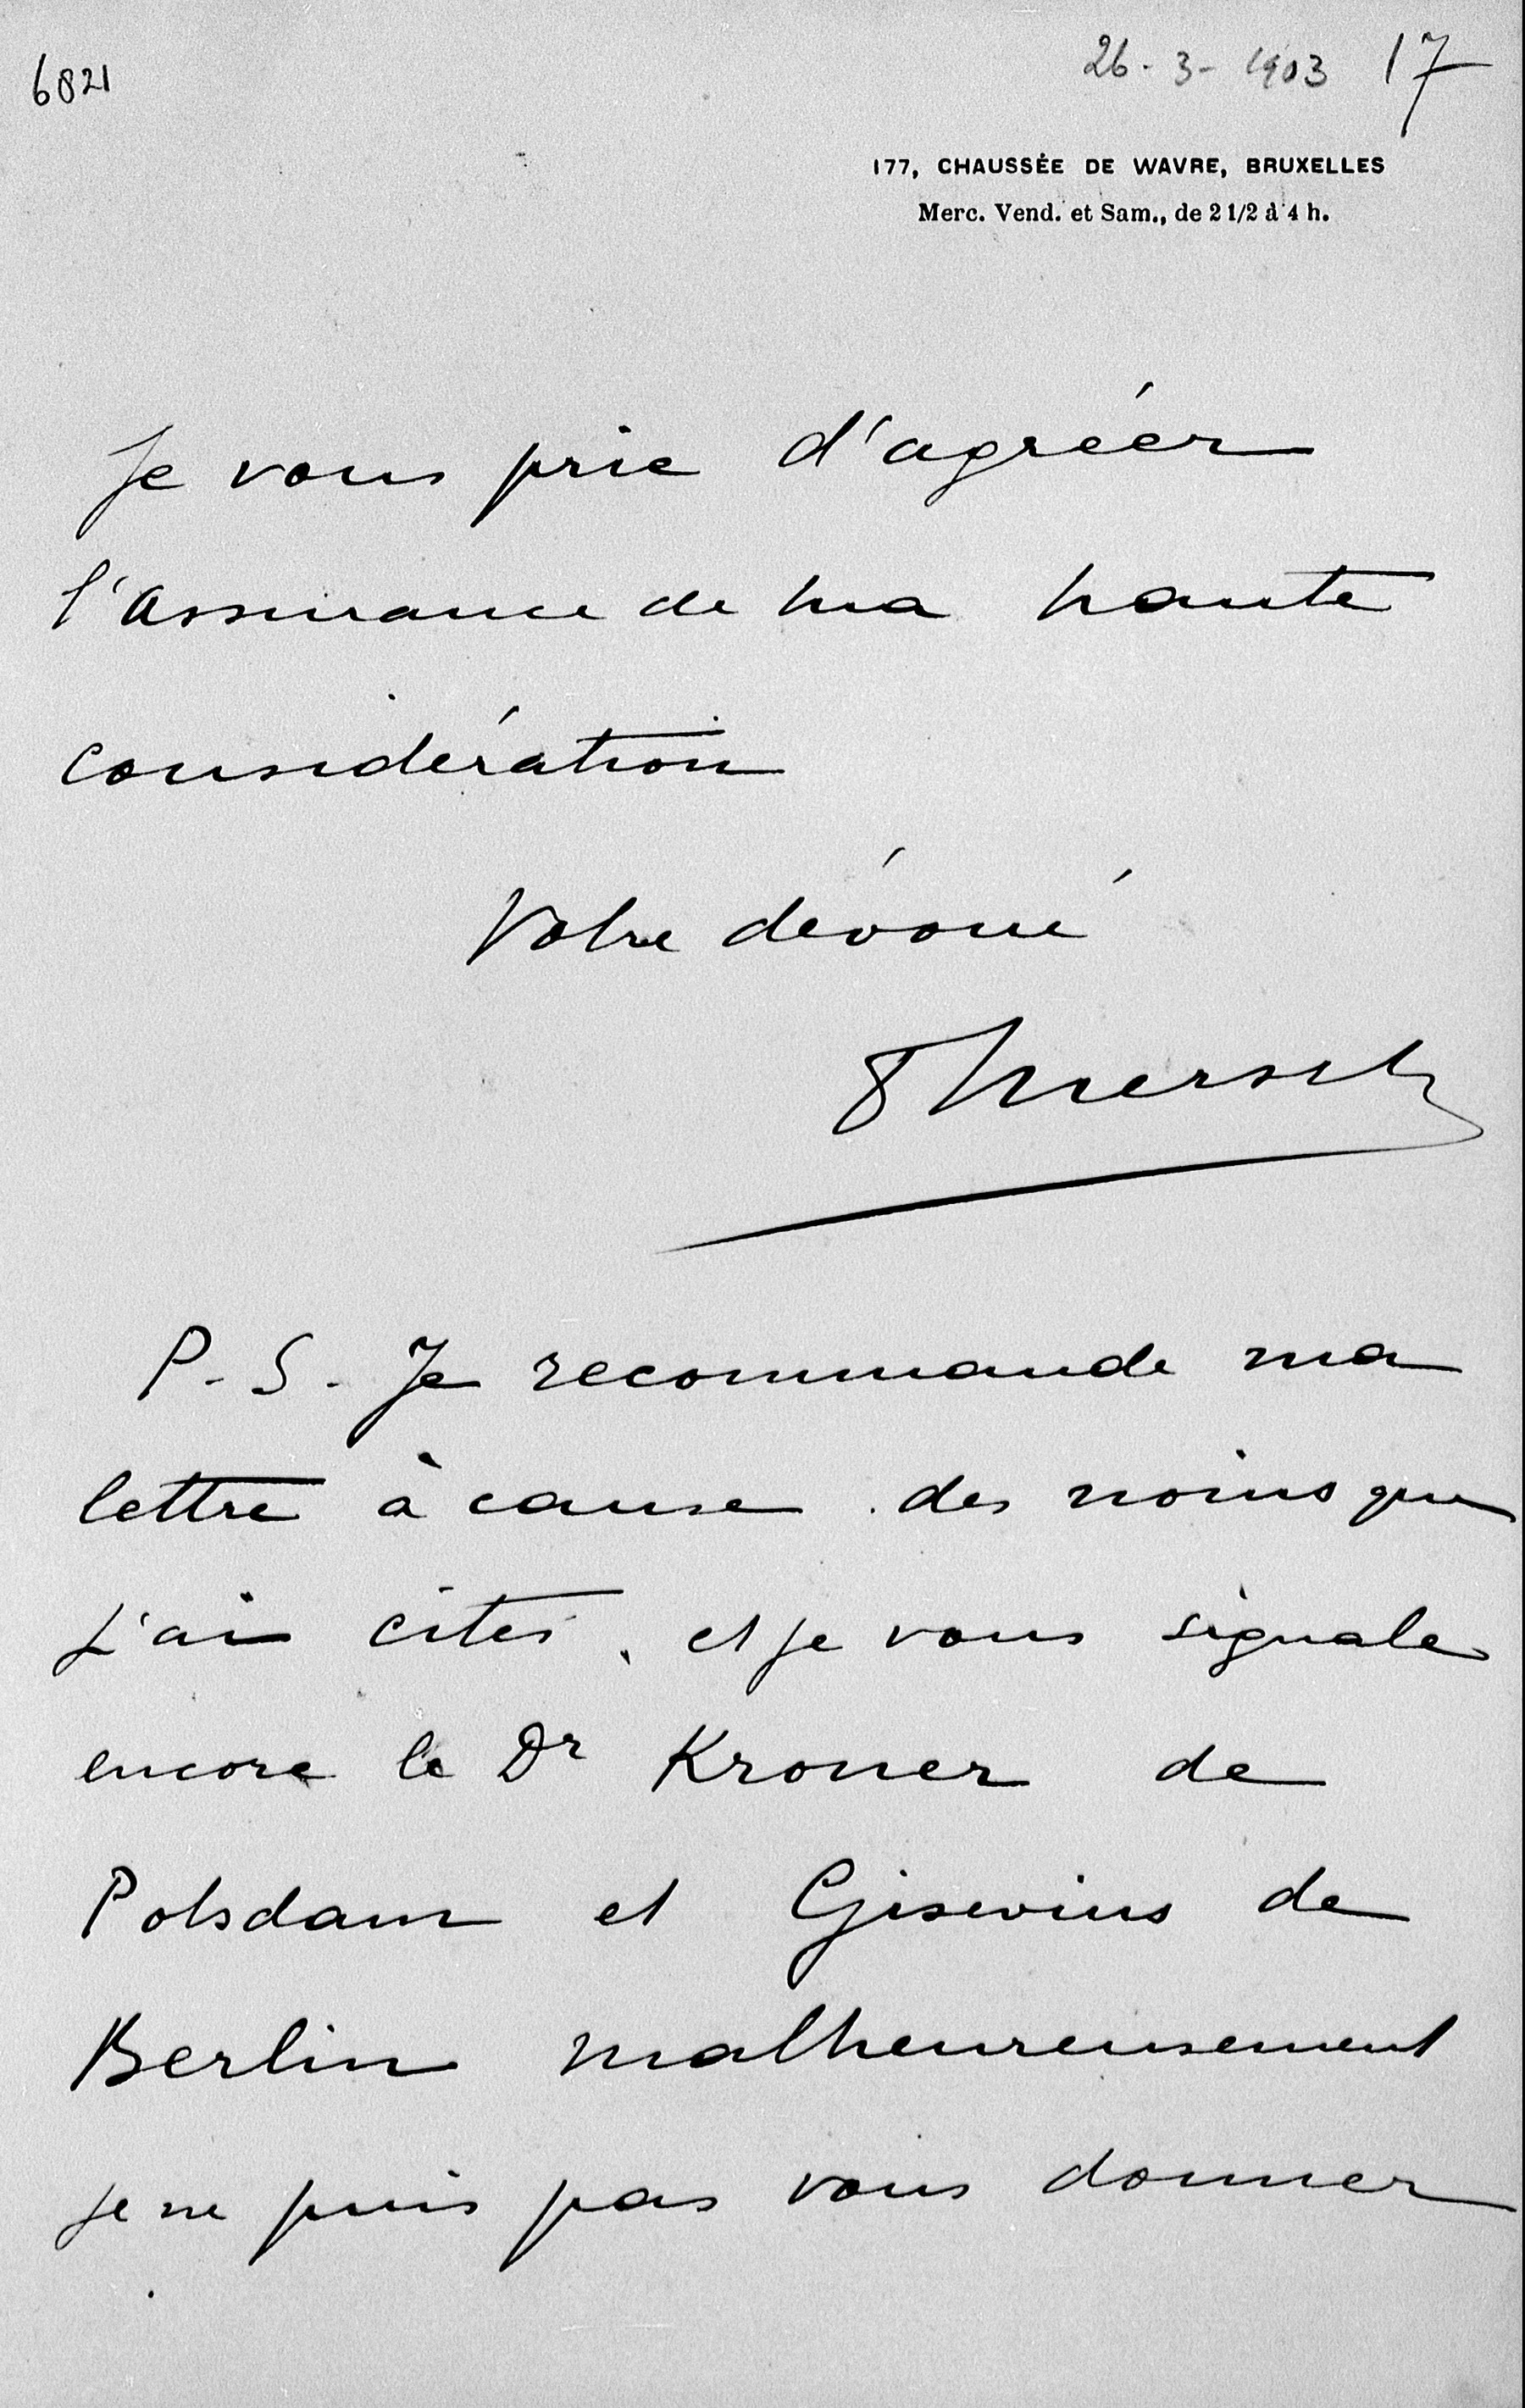 6821
26-3-1903 17
177, CHAUSSÉE DE WAVRE, BRUXELLES
Merc. Vend. et Sam., de 2 1/2 à 4 h.
Je vous prie d'agréer
l'assurance de ma haute
considération
Votre dévoué
Mersch
P.S. Je recommande ma
lettre à cause des noms que
j'ai cités, et je vous signale
encore le Dr Kroner de
Potsdam et Gisevius de
Berlin malheureusement
je ne puis pas vous donner